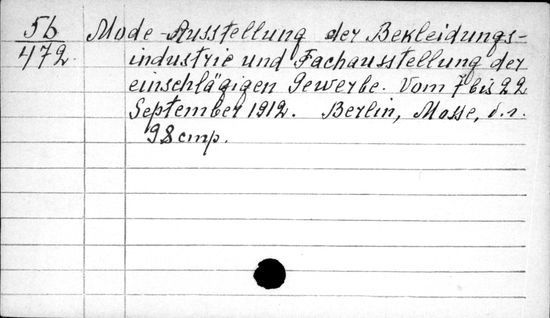 56 Mode-Ausstellung der Bekleidungs-
472 industrie und Fachausstellung der
einschlägigen Gewerbe. Vom 7 bis 22
September 1912. Berlin, Mosse,
98 стр.